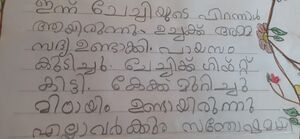 ഇന്ന് ചേച്ചിയുടെ പിറന്നാൾ
ആയിരുന്നു. ഉച്ചക്ക് അമ്മ
സദ്യ ഉണ്ടാക്കി. പായസം
കുടിച്ചു. ചേച്ചിക്ക് ഗിഫ്റ്റ്
കിട്ടി. കേക്ക് മുറിച്ചു
മിഠായിം ഉണ്ടായിരുന്നു
എല്ലാവർക്കും സന്തോഷമായി